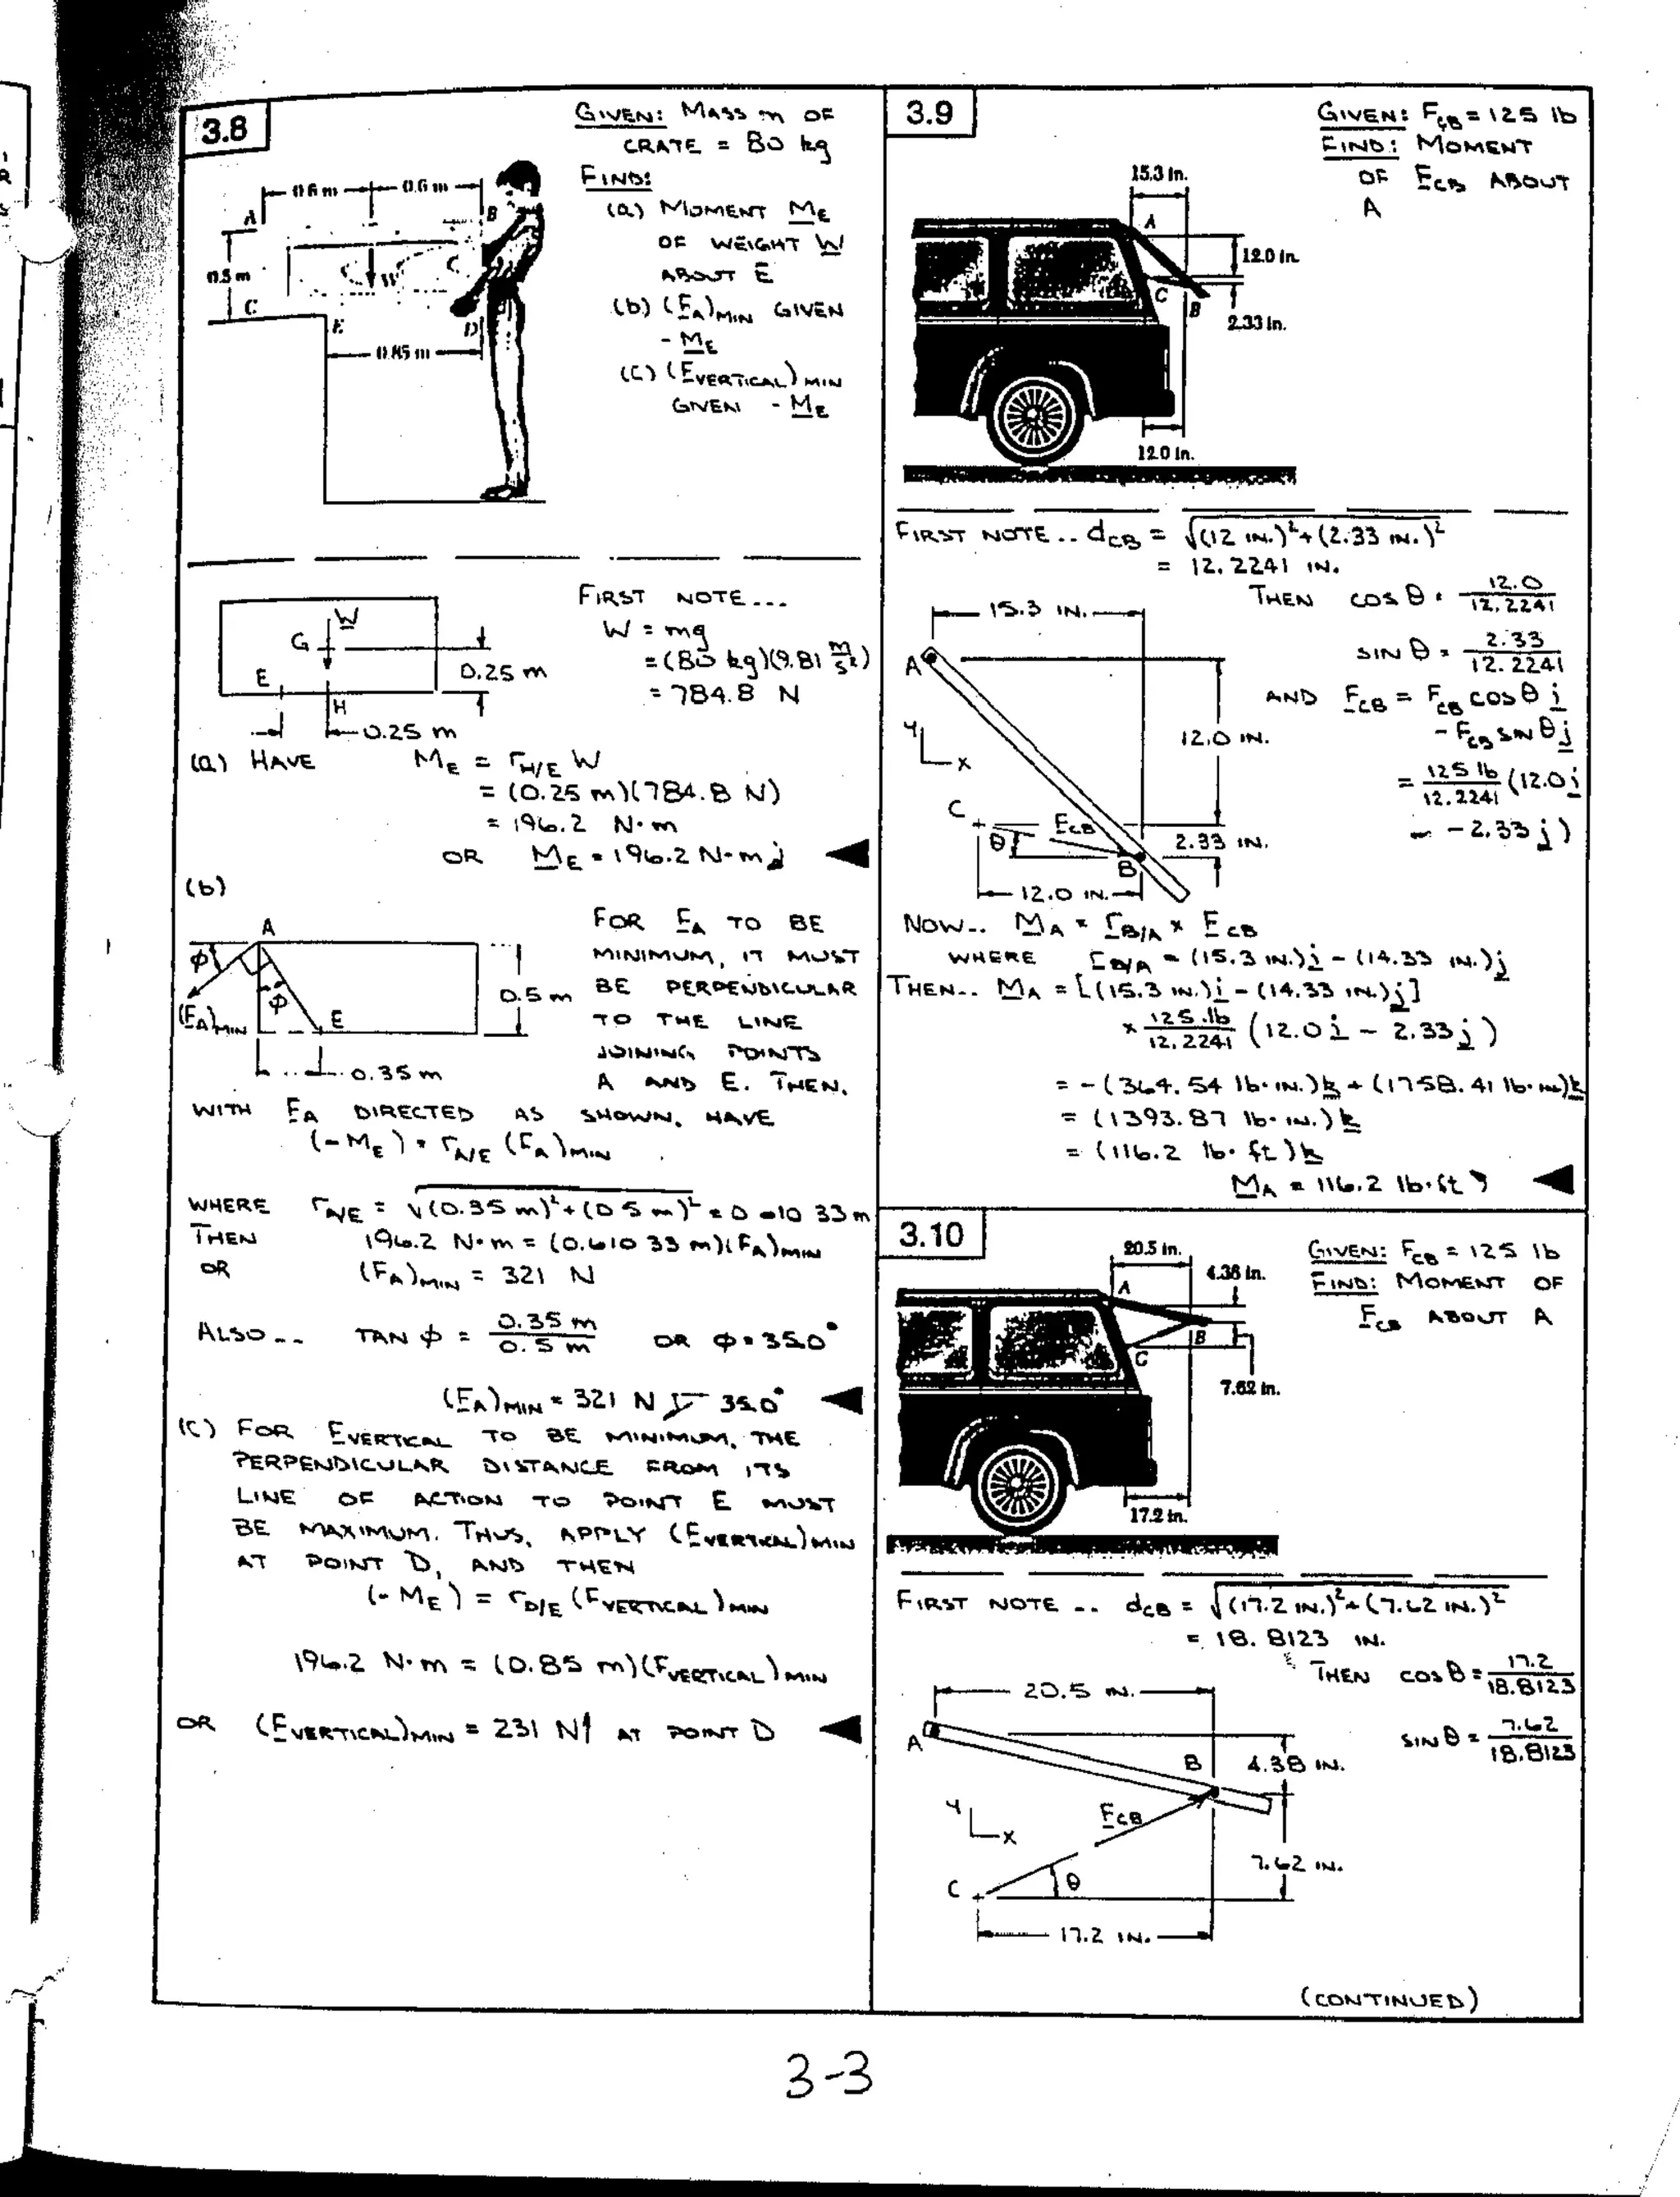 3.8
GIVEN: MASS m OF
CRATE = 80 kg
FIND:
(a) MOMENT M_E
OF WEIGHT W
ABOUT E
(b) (F_A)MIN GIVEN
- M_E
(c) (F_VERTICAL)MIN
GIVEN - M_E
0.6 m 0.6 m
A B
0.5 m W C
C E D
0.85 m
FIRST NOTE...
W = mg
= (80 kg)(9.81 m/s²)
= 784.8 N
W
G
E 0.25 m
H
0.25 m
(a) HAVE M_E = r_H/E W
= (0.25 m)(784.8 N)
= 196.2 N·m
OR M_E = 196.2 N·m
(b)
A
φ
φ 0.5 m
(F_A)MIN E
0.35 m
FOR F_A TO BE
MINIMUM, IT MUST
BE PERPENDICULAR
TO THE LINE
JOINING POINTS
A AND E. THEN,
WITH F_A DIRECTED AS SHOWN, HAVE
(-M_E) = r_A/E (F_A)MIN
WHERE r_A/E = √(0.35 m)²+(0.5 m)² = 0.610 33 m
THEN 196.2 N·m = (0.610 33 m)(F_A)MIN
OR (F_A)MIN = 321 N
ALSO -- TAN φ = 0.35 m / 0.5 m OR φ = 35.0°
(F_A)MIN = 321 N 35.0°
(c) FOR F_VERTICAL TO BE MINIMUM, THE
PERPENDICULAR DISTANCE FROM ITS
LINE OF ACTION TO POINT E MUST
BE MAXIMUM. THUS, APPLY (F_VERTICAL)MIN
AT POINT D, AND THEN
(-M_E) = r_D/E (F_VERTICAL)MIN
196.2 N·m = (0.85 m)(F_VERTICAL)MIN
OR (F_VERTICAL)MIN = 231 N↑ AT POINT D
3.9
GIVEN: F_CB = 125 lb
FIND: MOMENT
OF F_CB ABOUT
A
15.3 in.
A
12.0 in.
C
B
2.33 in.
12.0 in.
FIRST NOTE.. d_CB = √(12 IN.)²+(2.33 IN.)²
= 12.2241 IN.
THEN COS θ = 12.0 / 12.2241
SIN θ = 2.33 / 12.2241
AND F_CB = F_CB COS θ i
- F_CB SIN θ j
= 125 lb / 12.2241 (12.0 i
- 2.33 j)
15.3 IN.
A
y
x
12.0 IN.
C
F_CB
θ 2.33 IN.
B
12.0 IN.
NOW.. M_A = r_B/A × F_CB
WHERE r_B/A = (15.3 IN.)i - (14.33 IN.)j
THEN.. M_A = [(15.3 IN.)i - (14.33 IN.)j]
× 125 lb / 12.2241 (12.0 i - 2.33 j)
= -(364.54 lb·IN.)k + (1758.41 lb·IN.)k
= (1393.87 lb·IN.)k
= (116.2 lb·ft)k
M_A = 116.2 lb·ft
3.10
GIVEN: F_CB = 125 lb
FIND: MOMENT OF
F_CB ABOUT A
20.5 in.
4.38 in.
A
B
C
7.62 in.
17.2 in.
FIRST NOTE -- d_CB = √(17.2 IN.)²+(7.62 IN.)²
= 18.8123 IN.
THEN COS θ = 17.2 / 18.8123
SIN θ = 7.62 / 18.8123
20.5 IN.
A
B 4.38 IN.
y
x
F_CB
7.62 IN.
C θ
17.2 IN.
(CONTINUED)
3-3